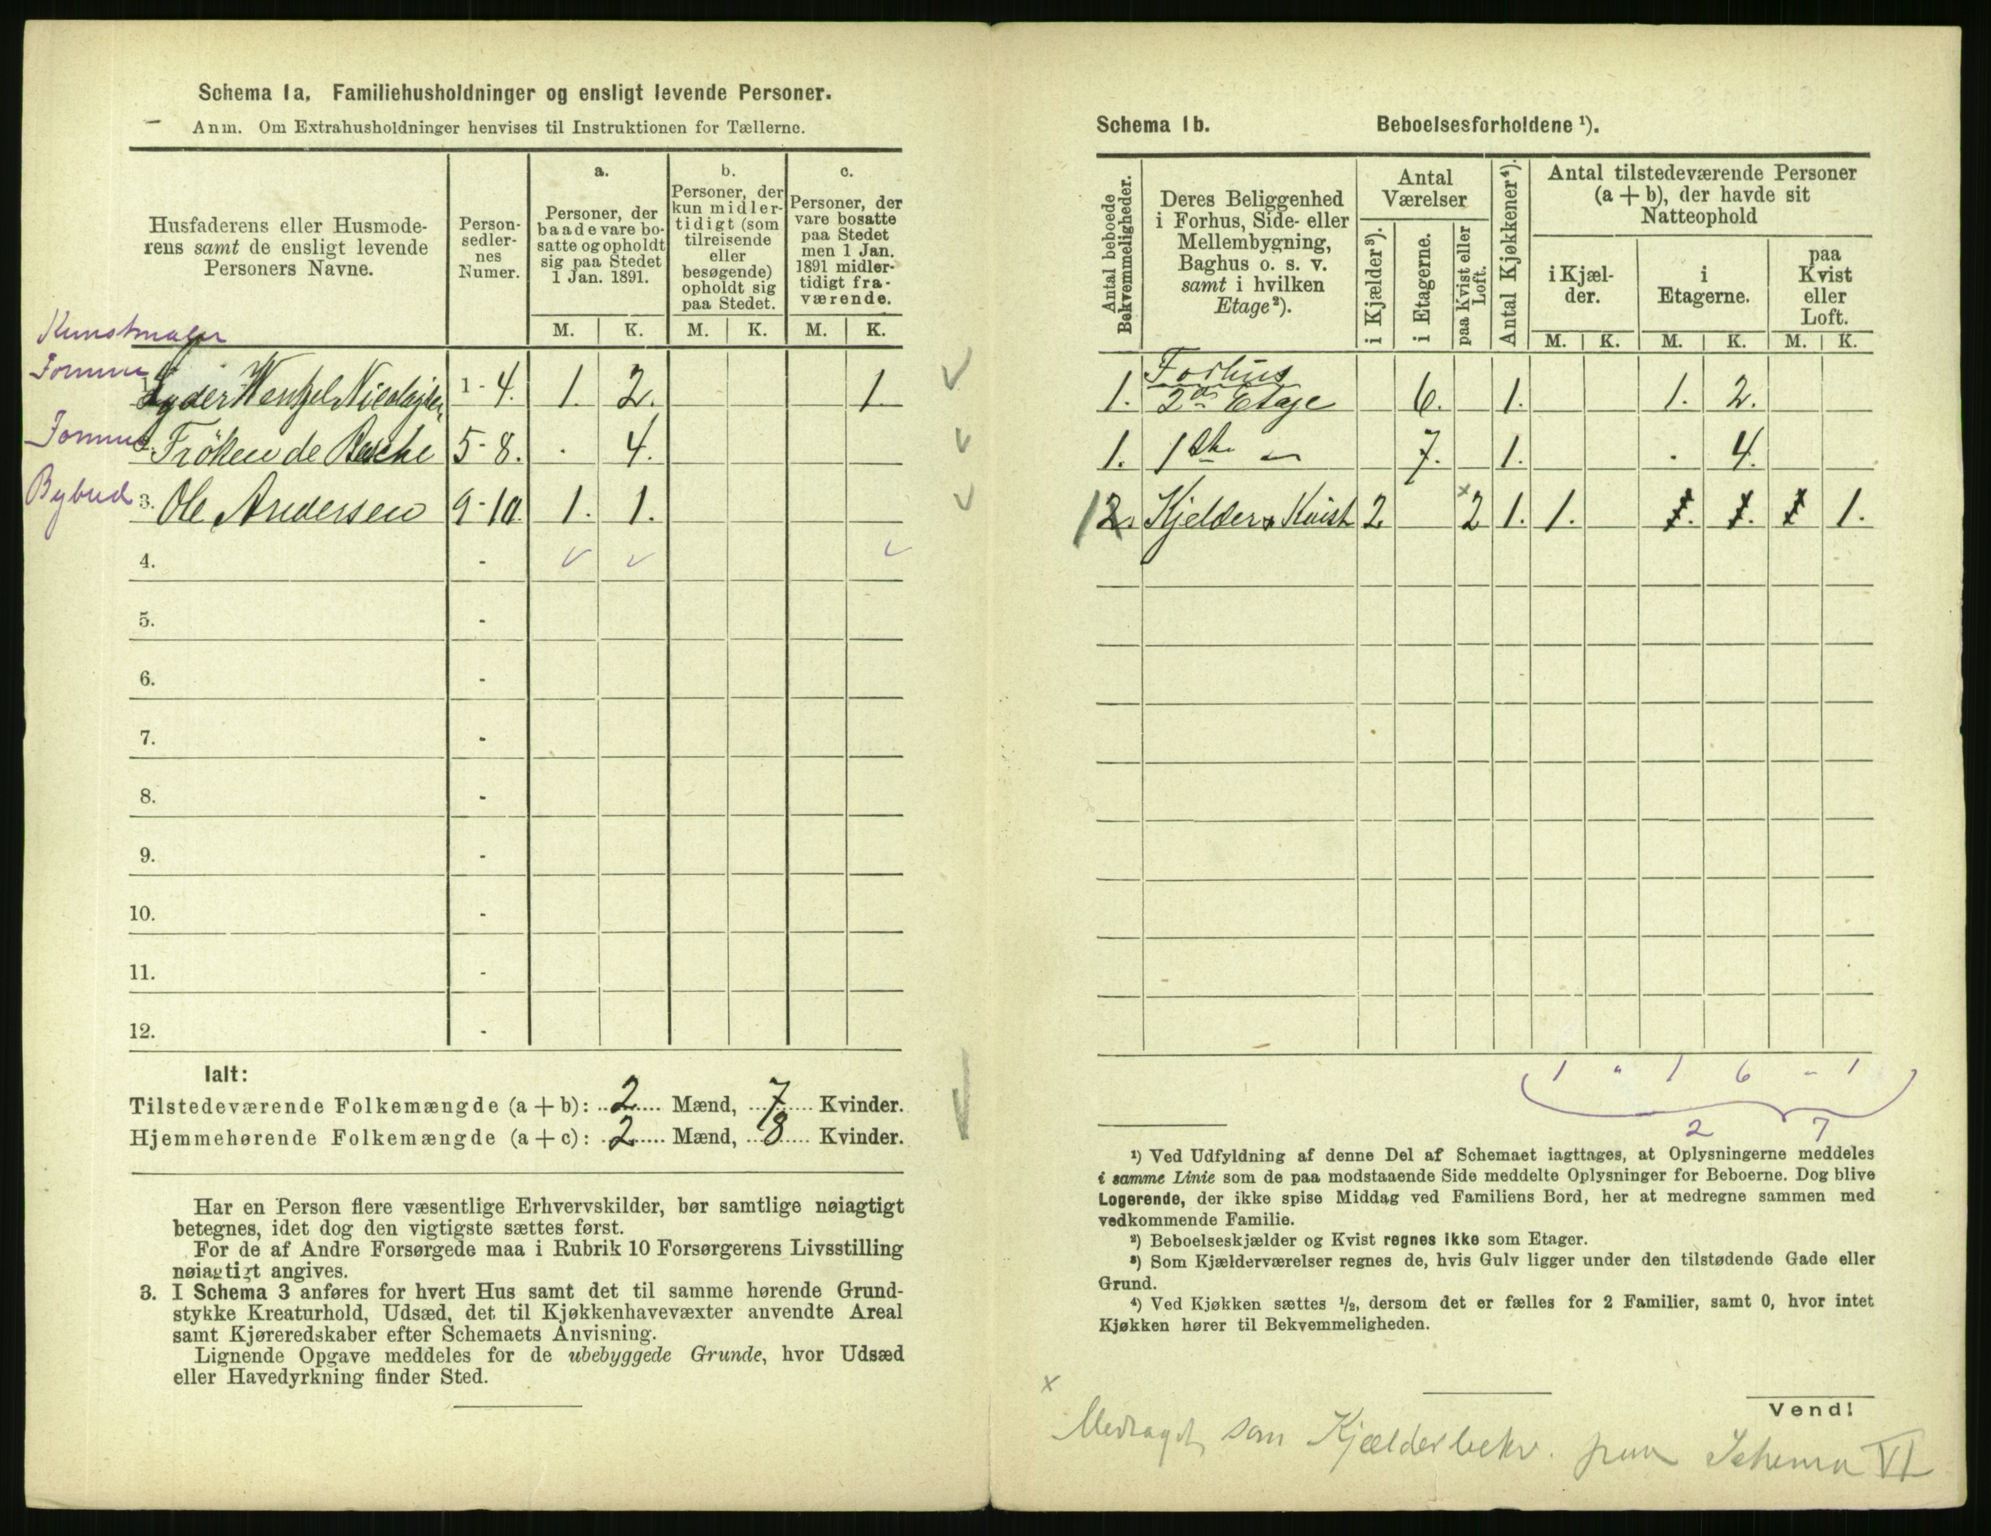 Schema 1a. Familiehusholdninger og ensligt levende Personer.
Anm. Om Extrahusholdninger henvises til Instruktionen for Tællerne.
Husfaderens eller Husmode-
rens samt de ensligt levende
Personers Navne.
Person-
sedler-
nes
Numer.
a.
Personer, der
baade vare bo-
satte og opholdt
sig paa Stedet
1 Jan. 1891.
b.
Personer, der
kun midler-
tidigt (som
tilreisende
eller
besøgende)
opholdt sig
paa Stedet.
c.
Personer, der
vare bosatte
paa Stedet
men 1 Jan.
1891 midler-
tidigt fra-
værende.
M. K. M. K. M. K.
Kunstmaler
Lyder Wentzel Nicolaysen 1-4. 1. 2. 1.
2. Frøken de Besche 5-8. . 4.
Bybud
3. Ole Andersen 9-10. 1. 1.
4. -
5. -
6. -
7. -
8. -
9. -
10. -
11. -
12. -
Ialt:
Tilstedeværende Folkemængde (a + b): 2 Mænd, 7 Kvinder.
Hjemmehørende Folkemængde (a + c): 2 Mænd, 8 Kvinder.
Har en Person flere væsentlige Erhvervskilder, bør samtlige nøiagtigt
betegnes, idet dog den vigtigste sættes først.
For de af Andre Forsørgede maa i Rubrik 10 Forsørgerens Livsstilling
nøiagtigt angives.
3. I Schema 3 anføres for hvert Hus samt det til samme hørende Grund-
stykke Kreaturhold, Udsæd, det til Kjøkkenhavevæxter anvendte Areal
samt Kjøreredskaber efter Schemaets Anvisning.
Lignende Opgave meddeles for de ubebyggede Grunde, hvor Udsæd
eller Havedyrkning finder Sted.
Schema 1b. Beboelsesforholdene ¹).
Antal beboede
Bekvemmeligheder.
Deres Beliggenhed
i Forhus, Side- eller
Mellembygning,
Baghus o. s. v.
samt i hvilken
Etage²).
Antal
Værelser
i Kjælder³).
i Etagerne.
paa Kvist eller
Loft.
Antal Kjøkkener⁴).
Antal tilstedeværende Personer
(a + b), der havde sit
Natteophold
i Kjæl-
der.
i
Etagerne.
paa
Kvist
eller
Loft.
M. K. M. K. M. K.
1. Forhus
2den Etage 6. 1. 1. 2.
1. 1ste " 7. 1. . 4.
1 2. Kjelder & Kvist 2. x2 1. 1. 1. 1. 1 1.
1 " 1 6 - 1
2 7
¹) Ved Udfyldning af denne Del af Schemaet iagttages, at Oplysningerne meddeles
i samme Linie som de paa modstaaende Side meddelte Oplysninger for Beboerne. Dog blive
Logerende, der ikke spise Middag ved Familiens Bord, her at medregne sammen med
vedkommende Familie.
²) Beboelseskjælder og Kvist regnes ikke som Etager.
³) Som Kjælderværelser regnes de, hvis Gulv ligger under den tilstødende Gade eller
Grund.
⁴) Ved Kjøkken sættes ½, dersom det er fælles for 2 Familier, samt 0, hvor intet
Kjøkken hører til Bekvemmeligheden.
Vend!
x
Medtaget som Kjælderbekv. paa Schema VI